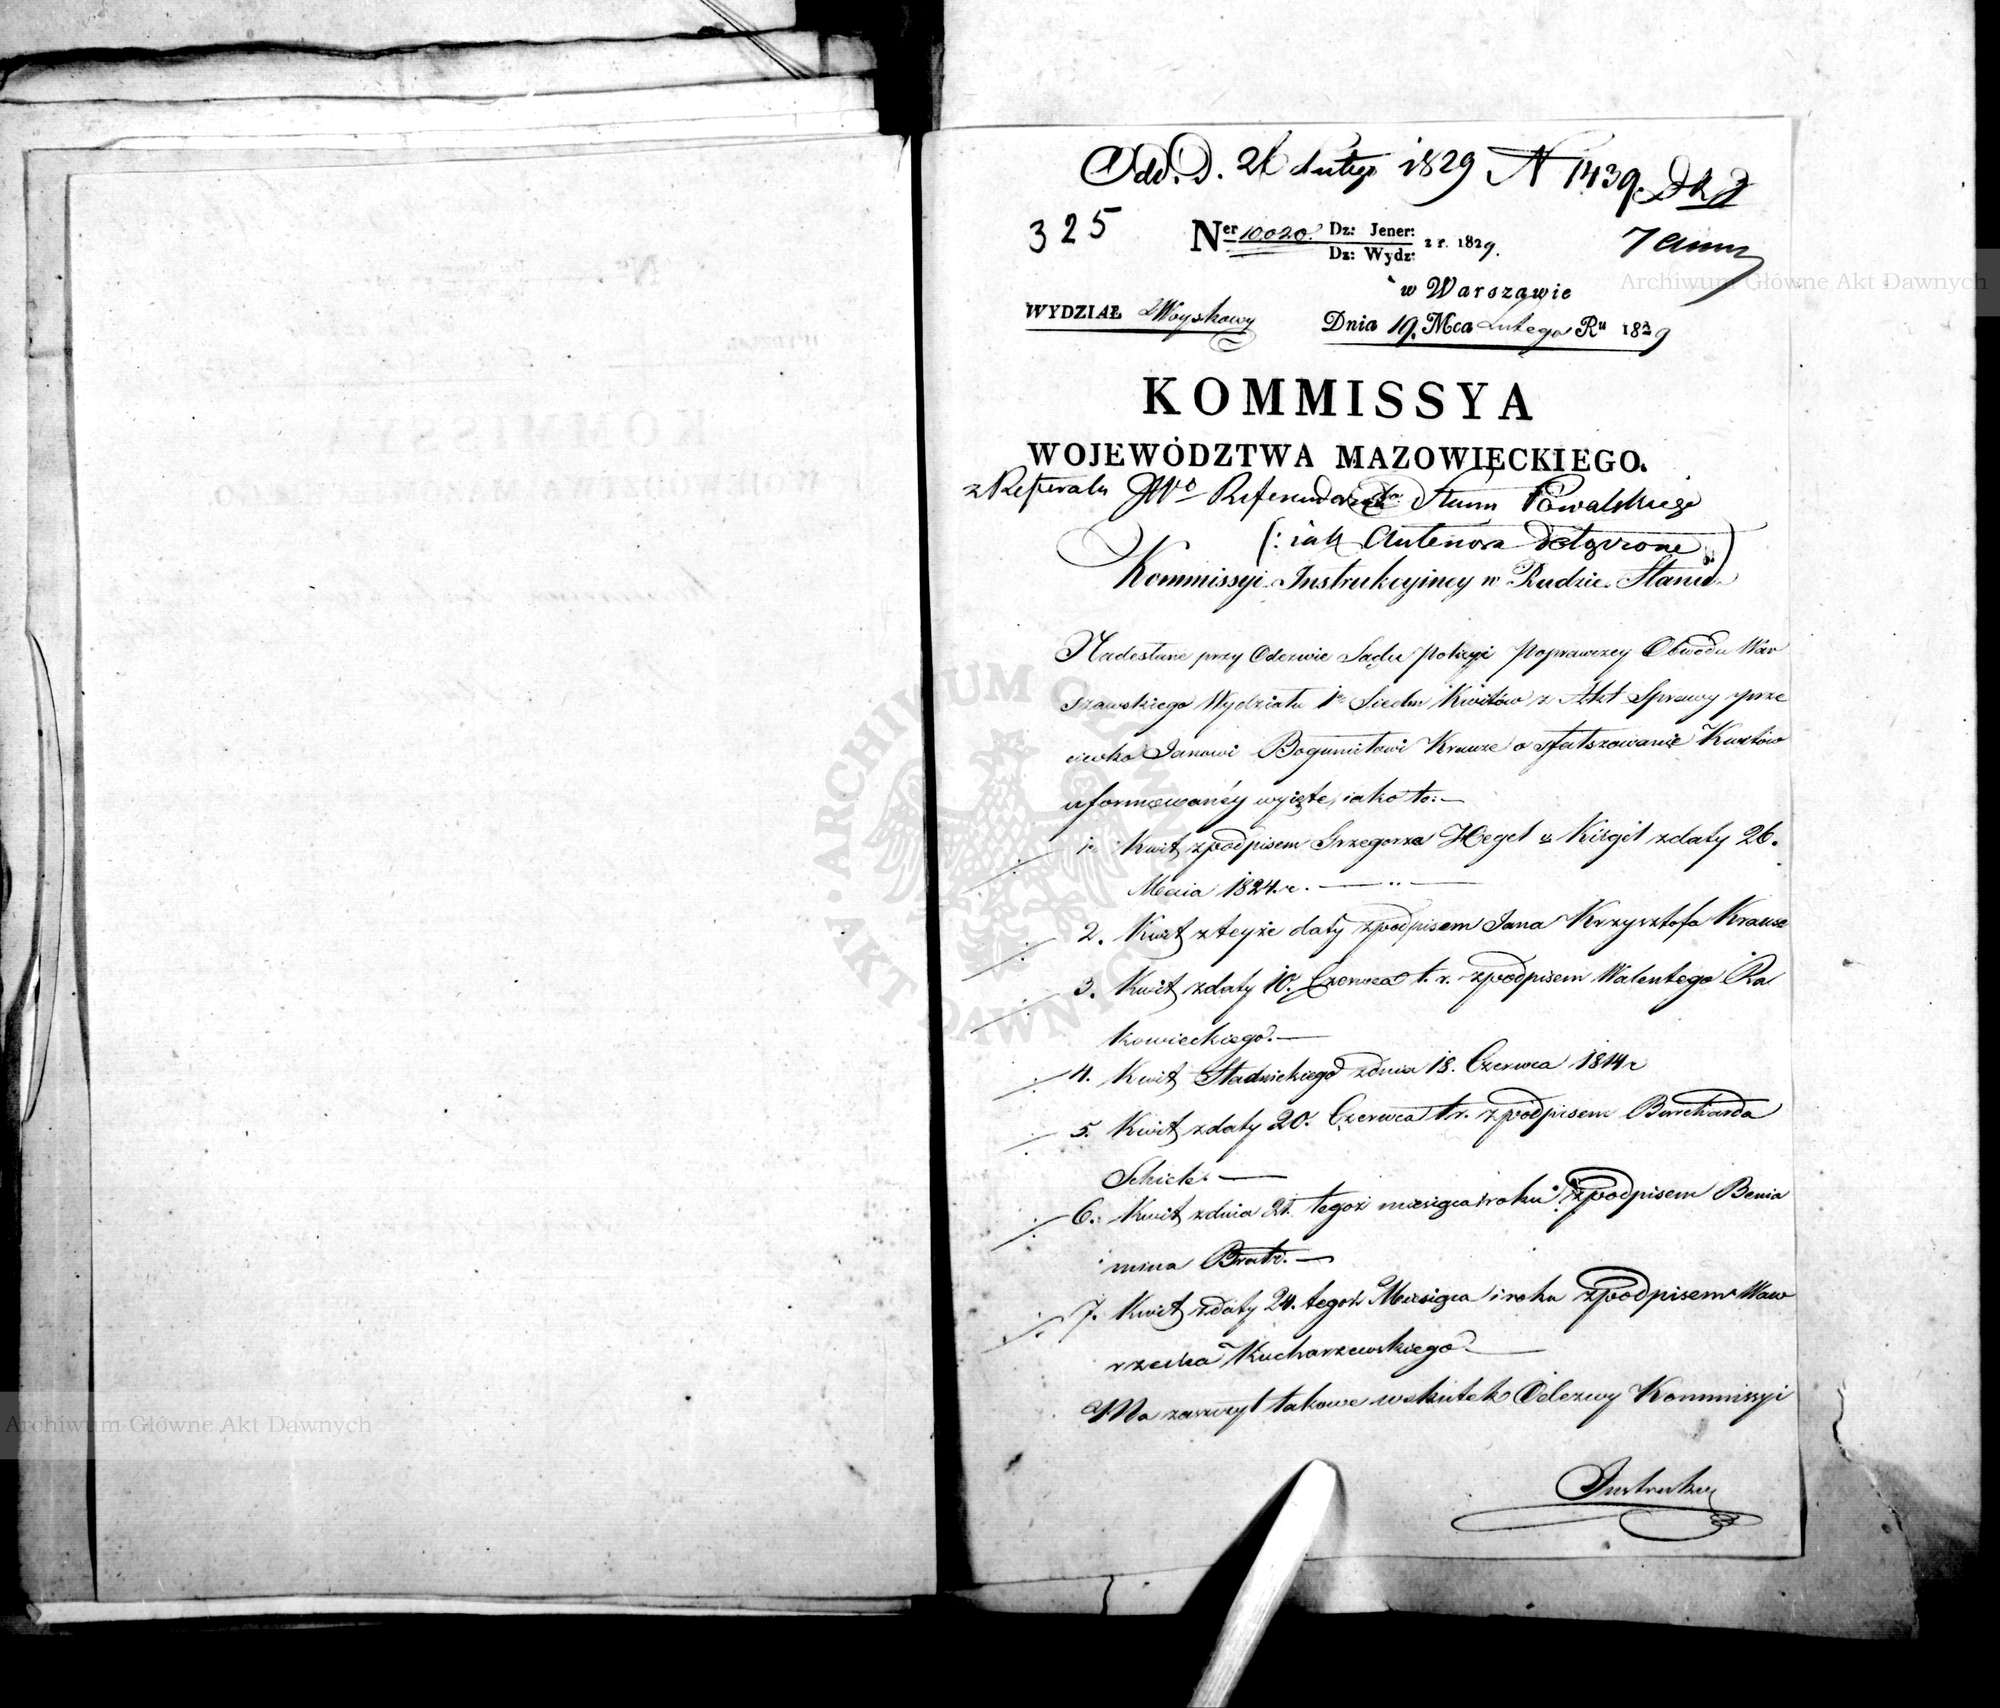 Odd. D. 21 Lutego 1829 N 1439.
325
Ner 10020. Dz: Jener:
Dz: Wydz: z r. 1829.
w Warszawie
WYDZIAŁ Woyskowy
Dnia 19. Mca Lutego Ru 1829
KOMMISSYA
WOJEWÓDZTWA MAZOWIECKIEGO.
z Referatu JWo Referendarza Stanu Kowalskiego
(: iak Antenora dołączone :)
Kommissyi Instrukcyiney w Radzie Stanu
Nadesłane przy Odezwie Sądu policyi poprawczey Obwodu War
szawskiego Wydziału 1o Siedm Kwitów z Akt Sprawy prze
ciwko Janowi Bogumiłowi Krauze o sfałszowanie Kwitów
uformowanéy wyięte, iako to:—
1. Kwit z podpisem Grzegorza Hegel z daty 26.
Maia 1824. r.
2. Kwit z teyże daty z podpisem Jana Krzysztofa Krause
3. Kwit z daty 10. Czerwca t. r. z podpisem Walentego Ra
kowieckiego.—
4. Kwit Stadnickiego z dnia 18. Czerwca 1814 r
5. Kwit z daty 20. Czerwca t. r. z podpisem Burcharda
Schick.—
6. Kwit z dnia 21. tegoż miesiąca i roku z podpisem Benia
mina Bratz.—
7. Kwit z daty 24. tegoż Miesiąca i roku z podpisem Waw
rzeńca Kucharzewskiego.—
Ma zaszczyt takowe w skutek Odezwy Kommissyi
Instrukcy
Archiwum Główne Akt Dawnych
Archiwum Główne Akt Dawnych
ARCHIWUM GŁÓWNE AKT DAWNYCH